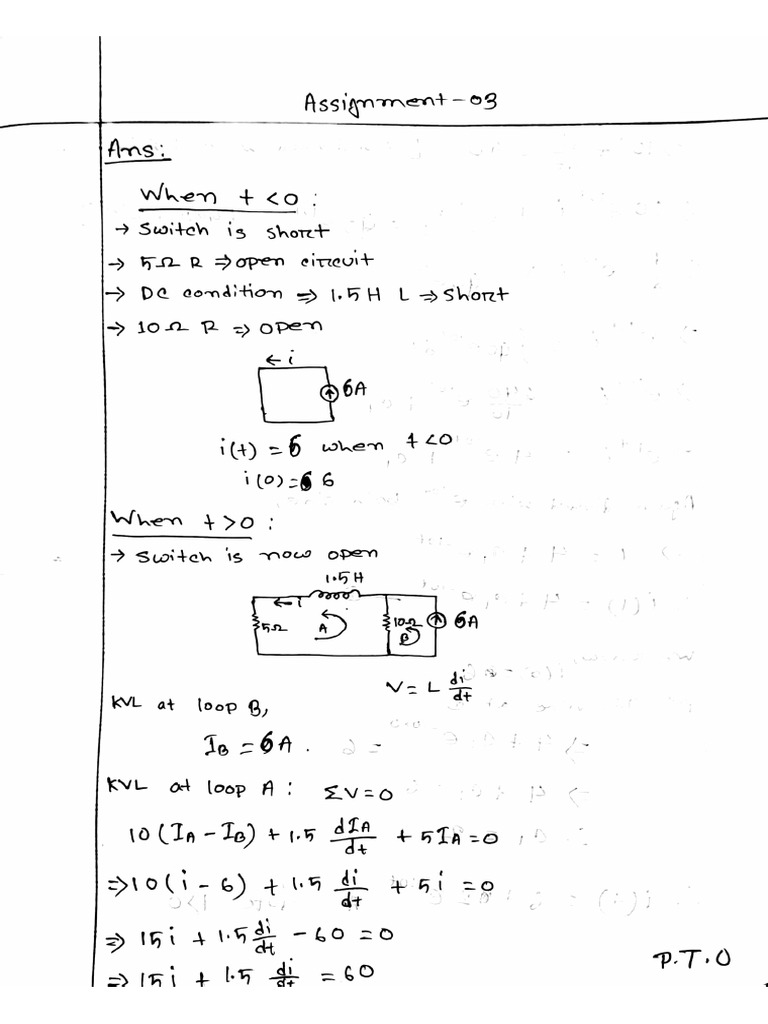 Assignment-03
Ans:
When t<0:
→ Switch is short
→ 5Ω R ⇒ open circuit
→ DC condition ⇒ 1.5H L ⇒ Short
→ 10Ω R ⇒ open
← i
6A
i(t) = 6 when t<0
i(0) = 6
When t>0:
→ Switch is now open
1.5H
← i
5Ω A 10Ω B 6A
V = L di/dt
KVL at loop B,
I_B = 6A.
KVL at loop A: ΣV=0
10(I_A - I_B) + 1.5 dI_A/dt + 5I_A = 0
⇒ 10(i - 6) + 1.5 di/dt + 5i = 0
⇒ 15i + 1.5 di/dt - 60 = 0
⇒ 15i + 1.5 di/dt = 60
P.T.O